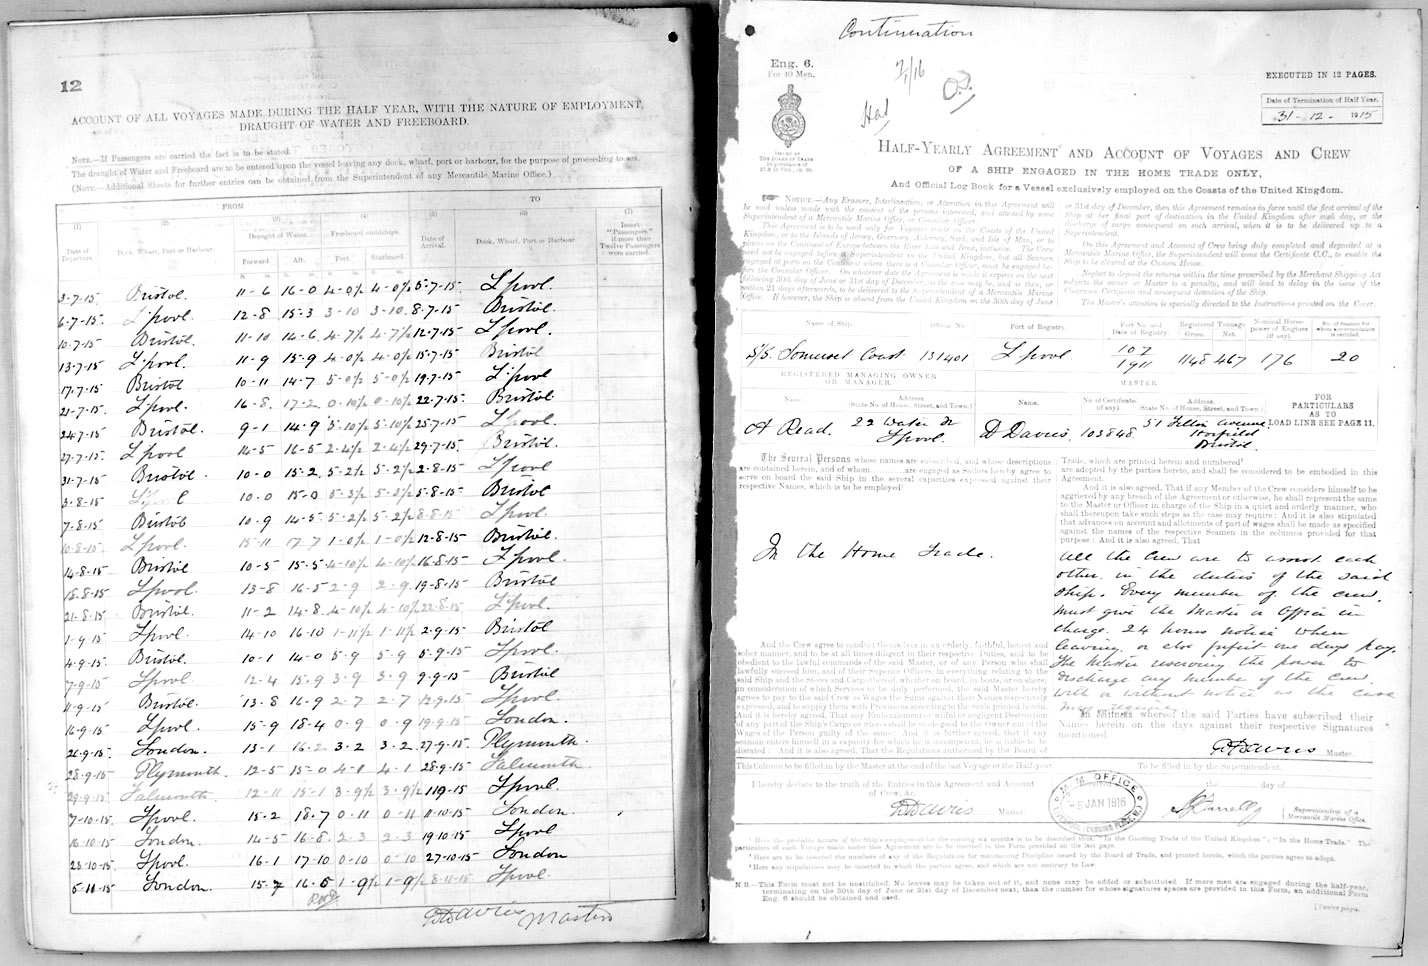 12
ACCOUNT OF ALL VOYAGES MADE DURING THE HALF YEAR, WITH THE NATURE OF EMPLOYMENT,
DRAUGHT OF WATER AND FREEBOARD.
NOTE.—If Passengers are carried the fact is to be stated.
The draught of Water and Freeboard are to be entered upon the vessel leaving any dock, wharf, port or harbour, for the purpose of proceeding to sea.
(NOTE.—Additional Sheets for further entries can be obtained from the Superintendent of any Mercantile Marine Office.)
FROM TO
(1) (2) (3) (4) (5) (6) (7)
Date of Departure Dock, Wharf, Port or Harbour. Draught of Water. Freeboard amidships. Date of Arrival. Dock, Wharf, Port or Harbour Insert "Passengers" if more than Twelve Passengers were carried.
Forward. Aft. Port. Starboard.
3-7-15 Bristol. 11-6 16-0 4-0½ 4-0½ 5-7-15 L'pool.
6-7-15. L'pool. 12-8 15-3 3-10 3-10 8-7-15 Bristol.
10-7-15 Bristol. 11-10 14-6 4-7½ 4-7½ 12-7-15 L'pool.
13-7-15 L'pool. 11-9 15-9 4-0½ 4-0½ 15-7-15 Bristol
17-7-15 Bristol 10-11 14-7 5-0½ 5-0½ 19-7-15 L'pool
21-7-15. L'pool. 16-8. 17-2 0-10½ 0-10½ 22-7-15 Bristol
24-7-15 Bristol. 9-1 14-9 5-10½ 5-10½ 25-7-15 L'pool
27-7-15. L'pool 14-5 16-5 2-4½ 2-4½ 29-7-15 Bristol
31-7-15 Bristol. 10-0 15-2 5-2½ 5-2½ 2-8-15 L'pool
3-8-15 L'pool 10-0 15-0 5-3½ 5-3½ 5-8-15 Bristol
7-8-15 Bristol 10-9 14-5 5-2½ 5-2½ 8-8-15 L'pool
10-8-15 L'pool. 15-11 17-7 1-0½ 1-0½ 12-8-15 Bristol.
14-8-15 Bristol 10-5 15-5 4-10½ 4-10½ 16-8-15 L'pool.
18-8-15 L'pool 13-8 16-5 2-9 2-9 19-8-15 Bristol
21-8-15 Bristol. 11-2 14-8 4-10½ 4-10½ 22-8-15 L'pool.
1-9-15 L'pool. 14-10 16-10 1-11½ 1-11½ 2-9-15 Bristol
4-9-15 Bristol. 10-1 14-0 5-9 5-9 5-9-15 L'pool.
7-9-15 L'pool 12-4 15-9 3-9 3-9 9-9-15 Bristol
11-9-15 Bristol. 13-8 16-9 2-7 2-7 12-9-15 L'pool
16-9-15 L'pool. 15-9 18-4 0-9 0-9 19-9-15 London.
26-9-15 London. 13-1 16-2 3-2 3-2 27-9-15 Plymouth.
28-9-15 Plymouth. 12-5 15-0 4-1 4-1 28-9-15 Falmouth.
29-9-15 Falmouth. 12-11 15-1 3-9½ 3-9½ L'pool.
7-10-15 L'pool. 15-2 18-7 0-11 0-11 11-10-15 London.
16-10-15 London. 14-5 16-8 2-3 2-3 19-10-15 L'pool
23-10-15 L'pool. 16-1 17-10 0-10 0-10 27-10-15 London
5-11-15 London. 15-7 16-5 1-9½ 1-9½ 8-11-15 L'pool.
D Davies Master
Continuation
Eng. 6.
For 40 Men.
7/1/16
EXECUTED IN 12 PAGES.
Date of Termination of Half Year.
31-12-1915
ISSUED BY
THE BOARD OF TRADE
HALF-YEARLY AGREEMENT AND ACCOUNT OF VOYAGES AND CREW
OF A SHIP ENGAGED IN THE HOME TRADE ONLY,
And Official Log Book for a Vessel exclusively employed on the Coasts of the United Kingdom.
NOTICE.—Any Erasure, Interlineation, or Alteration in this Agreement will
be void unless made with the consent of the persons interested, and attested by some
Superintendent of a Mercantile Marine Office, or Consular Officer.
or 31st day of December, then this Agreement remains in force until the first arrival of the
Ship at her final port of destination in the United Kingdom after such day, or the
discharge of cargo consequent on such arrival, when it is to be delivered up to a
Superintendent.
On this Agreement and Account of Crew being duly completed and deposited at a
Mercantile Marine Office, the Superintendent will issue the Certificate C.C., to enable the
Ship to be cleared at the Custom House.
Neglect to deposit the returns within the time prescribed by the Merchant Shipping Act
subjects the owner or Master to a penalty, and will lead to delay in the issue of the
Clearance Certificate and consequent detention of the Ship.
The Master's attention is specially directed to the Instructions printed on the Cover.
Name of Ship. Official No. Port of Registry. Port No. and Date of Registry. Registered Tonnage Gross. Net. Nominal Horse-power of Engines (if any). No. of Seamen for whom accommodation is certified.
S/S. Somerset Coast 131401 L'pool 107/1911 1148 467 176 20
REGISTERED MANAGING OWNER OR MANAGER MASTER
Name. Address. (State No. of House, Street, and Town.) Name. No. of Certificate (if any). Address. (State No. of House, Street, and Town.)
FOR PARTICULARS AS TO LOAD LINE SEE PAGE 11.
A Read. 22 Water St L'pool. D Davies. 103848 Avenue Horfield Bristol.
The Several Persons whose names are subscribed, and whose descriptions
are contained herein, and of whom ........ are engaged as Sailors hereby agree to
serve on board the said Ship in the several capacities expressed against their
respective Names, which is to be employed
In the Home Trade.
And the Crew agree to conduct themselves in an orderly, faithful, honest and
sober manner, and to be at all times diligent in their respective Duties, and to be
obedient to the lawful commands of the said Master, or of any Person who shall
lawfully succeed him, and of their Superior Officers, in everything relating to the
said Ship and the Stores and Cargo thereof, whether on board, in boats, or on shore;
in consideration of which Services to be duly performed, the said Master hereby
agrees to pay to the said Crew as Wages the Sums against their Names respectively
expressed, and to supply them with Provisions according to the Scale printed herein.
Trade, which are printed herein and numbered
are adopted by the parties hereto, and shall be considered to be embodied in this
Agreement.
And it is also agreed, That if any Member of the Crew considers himself to be
aggrieved by any breach of the Agreement or otherwise, he shall represent the same
to the Master or Officer in charge of the Ship in a quiet and orderly manner, who
shall thereupon take such steps as the case may require: And it is also stipulated
that advances on account and allotments of part of wages shall be made as specified
against the names of the respective Seamen in the columns provided for that
purpose: And it is also agreed, That
All the Crew are to assist each
other in the duties of the said
Ship. Every member of the crew.
must give the Master or Officer in
charge 24 hours notice when
leaving or else forfeit one days pay.
The Master reserving the power to
discharge any member of the Crew
with or without notice as the case
may require
In Witness whereof the said Parties have subscribed their
Names herein on the days against their respective Signatures
mentioned.
D Davies Master.
This Column to be filled in by the Master at the end of the last Voyage or the Half-year
To be filled in by the Superintendent.
I hereby declare to the truth of the Entries in this Agreement and Account
of Crew, &c.
D Davies Master
the day of
M.M. OFFICE
-5 JAN 1916
Superintendent of a
Mercantile Marine Office.
Here are to be inserted the numbers of any of the Regulations for maintaining Discipline issued by the Board of Trade, and printed herein, which the parties agree to adopt.
Here any stipulations may be inserted to which the parties agree, and which are not contrary to Law.
N.B.—This Form must not be unstitched. No leaves may be taken out of it, and none may be added or substituted. If more men are engaged during the half-year,
terminating on the 30th day of June or 31st day of December next, than the number for whose signatures spaces are provided in this Form, an additional Form
Eng. 6 should be obtained and used.